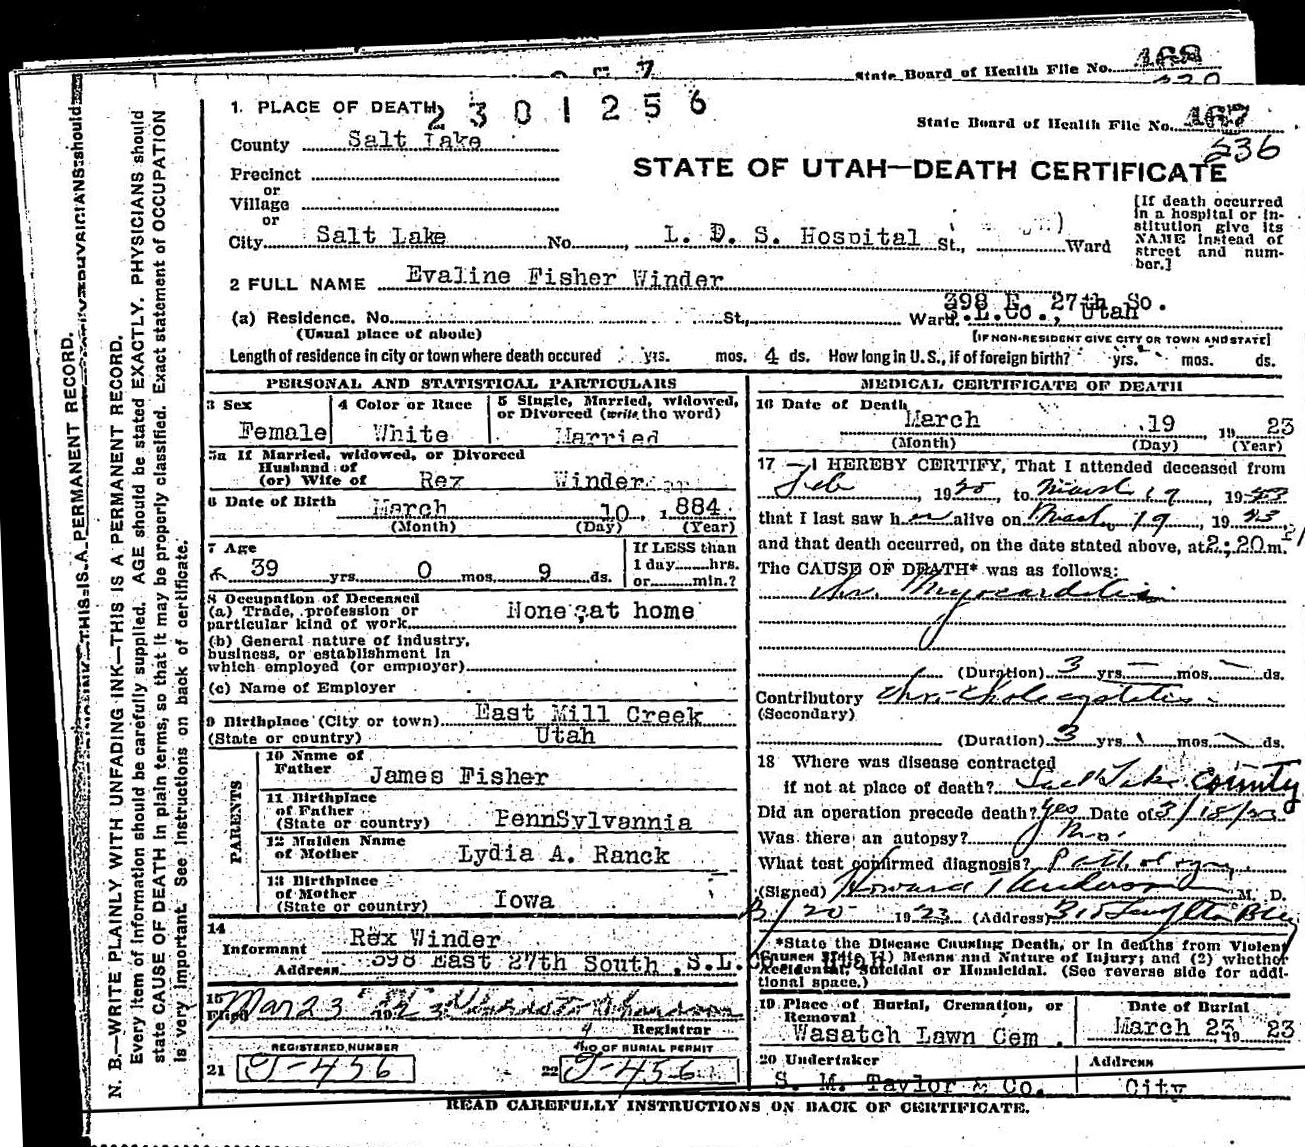 168
State Board of Health File No.
2301256
167
State Board of Health File No.
236
1. PLACE OF DEATH
County Salt Lake
STATE OF UTAH—DEATH CERTIFICATE
Precinct
or
Village
or
City Salt Lake No. L. D. S. Hospital St., Ward
[If death occurred in a hospital or institution give its NAME instead of street and number.]
2 FULL NAME Evaline Fisher Winder
398 E. 27th So.
(a) Residence. No. St., Ward. S.L.Co., Utah
(Usual place of abode) [IF NON-RESIDENT GIVE CITY OR TOWN AND STATE]
Length of residence in city or town where death occured yrs. mos. 4 ds. How long in U. S., if of foreign birth? yrs. mos. ds.
PERSONAL AND STATISTICAL PARTICULARS
3 Sex 4 Color or Race 5 Single, Married, widowed, or Divorced (write the word)
Female White Married
5a If Married, widowed, or Divorced
Husband of
(or) Wife of Rex Winder
6 Date of Birth March 10, 1884
(Month) (Day) (Year)
7 Age If LESS than
39 yrs. 0 mos. 9 ds. 1 day hrs.
or min.?
8 Occupation of Deceased
(a) Trade, profession or None at home
particular kind of work
(b) General nature of industry,
business, or establishment in
which employed (or employer)
(c) Name of Employer
9 Birthplace (City or town) East Mill Creek
(State or country) Utah
PARENTS
10 Name of
Father James Fisher
11 Birthplace
of Father
(State or country) PennSylvannia
12 Maiden Name
of Mother Lydia A. Ranck
13 Birthplace
of Mother
(State or country) Iowa
14
Informant Rex Winder
Address 398 East 27th South, S.L.
15
Filed Mar 23 1923
Registrar
REGISTERED NUMBER NO OF BURIAL PERMIT
21 T-456 22 T-456
MEDICAL CERTIFICATE OF DEATH
16 Date of Death
March 19 1923
(Month) (Day) (Year)
17 I HEREBY CERTIFY, That I attended deceased from
Feb, 1920, to March 19, 1923
that I last saw her alive on March 19, 1923
and that death occurred, on the date stated above, at 2:20 m.
The CAUSE OF DEATH* was as follows:
Chr. Myocarditis
(Duration) 3 yrs. — mos. — ds.
Contributory Chr. Cholecystitis
(Secondary)
(Duration) 3 yrs. mos. ds.
18 Where was disease contracted
if not at place of death? Salt Lake County
Did an operation precede death? Yes Date of 3/18/23
Was there an autopsy? No.
What test confirmed diagnosis? Pathology
(Signed) Howard Anderson M. D.
3/20 1923 (Address)
*State the Disease Causing Death, or in deaths from Violent
Causes state (1) Means and Nature of Injury; and (2) whether
Accidental, Suicidal or Homicidal. (See reverse side for additional space.)
19 Place of Burial, Cremation, or Removal Date of Burial
Wasatch Lawn Cem. March 23, 1923
20 Undertaker Address
S. M. Taylor & Co. City
READ CAREFULLY INSTRUCTIONS ON BACK OF CERTIFICATE.
THIS IS A PERMANENT RECORD.
N. B.—WRITE PLAINLY WITH UNFADING INK—THIS IS A PERMANENT RECORD.
Every item of information should be carefully supplied. AGE should be stated EXACTLY. PHYSICIANS should
state CAUSE OF DEATH in plain terms, so that it may be properly classified. Exact statement of OCCUPATION
is very important. See instructions on back of certificate.